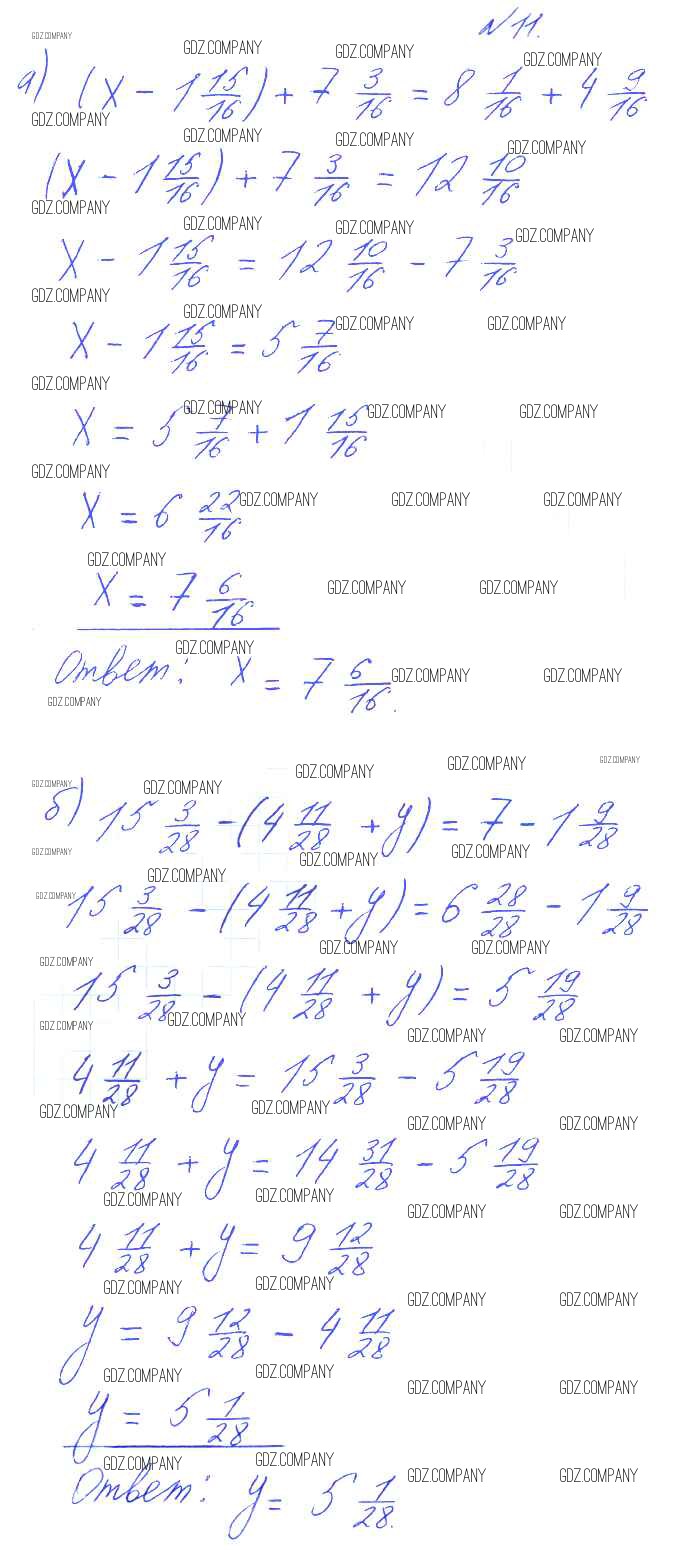 N 11.
а) (x - 1 15/16) + 7 3/16 = 8 1/16 + 4 9/16
(x - 1 15/16) + 7 3/16 = 12 10/16
x - 1 15/16 = 12 10/16 - 7 3/16
x - 1 15/16 = 5 7/16
x = 5 7/16 + 1 15/16
x = 6 22/16
x = 7 6/16
Ответ: x = 7 6/16.
б) 15 3/28 - (4 11/28 + y) = 7 - 1 9/28
15 3/28 - (4 11/28 + y) = 6 28/28 - 1 9/28
15 3/28 - (4 11/28 + y) = 5 19/28
4 11/28 + y = 15 3/28 - 5 19/28
4 11/28 + y = 14 31/28 - 5 19/28
4 11/28 + y = 9 12/28
y = 9 12/28 - 4 11/28
y = 5 1/28
Ответ: y = 5 1/28.
GDZ.COMPANY